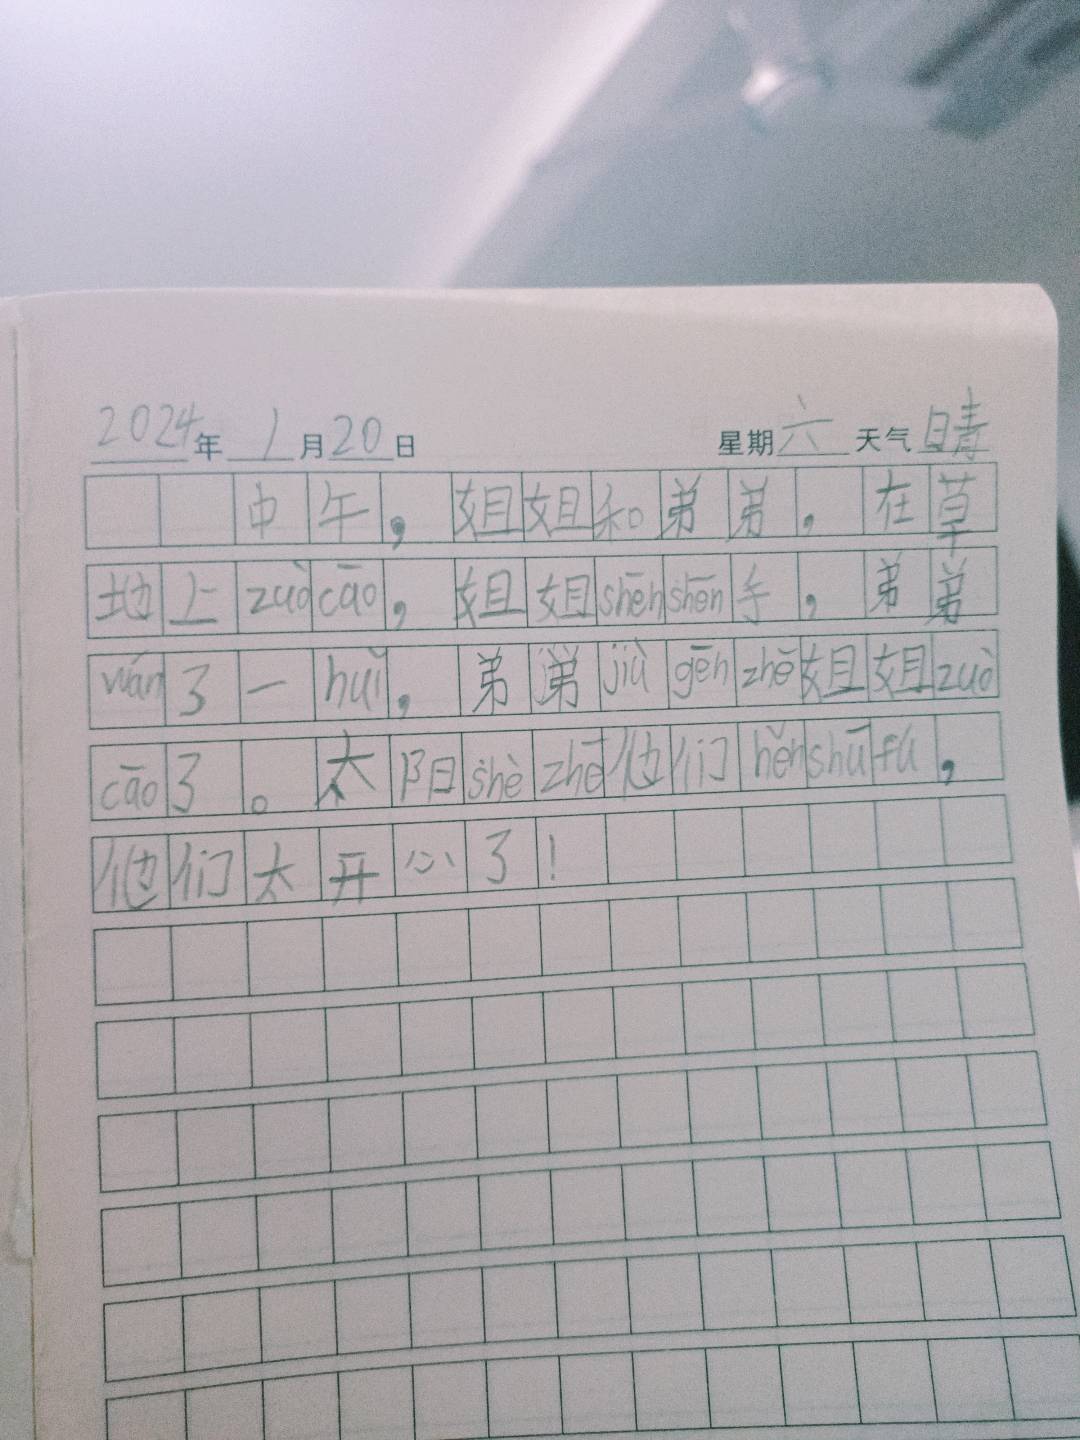 2024年1月20日 星期六 天气晴
中午，姐姐和弟弟，在草
地上zuòcāo，姐姐shēnshēn手，弟弟
wán了一huǐ，弟弟jiù gēn zhē姐姐zuò
cāo了。太阳shè zhē他们hěn shū fú，
他们太开心了！